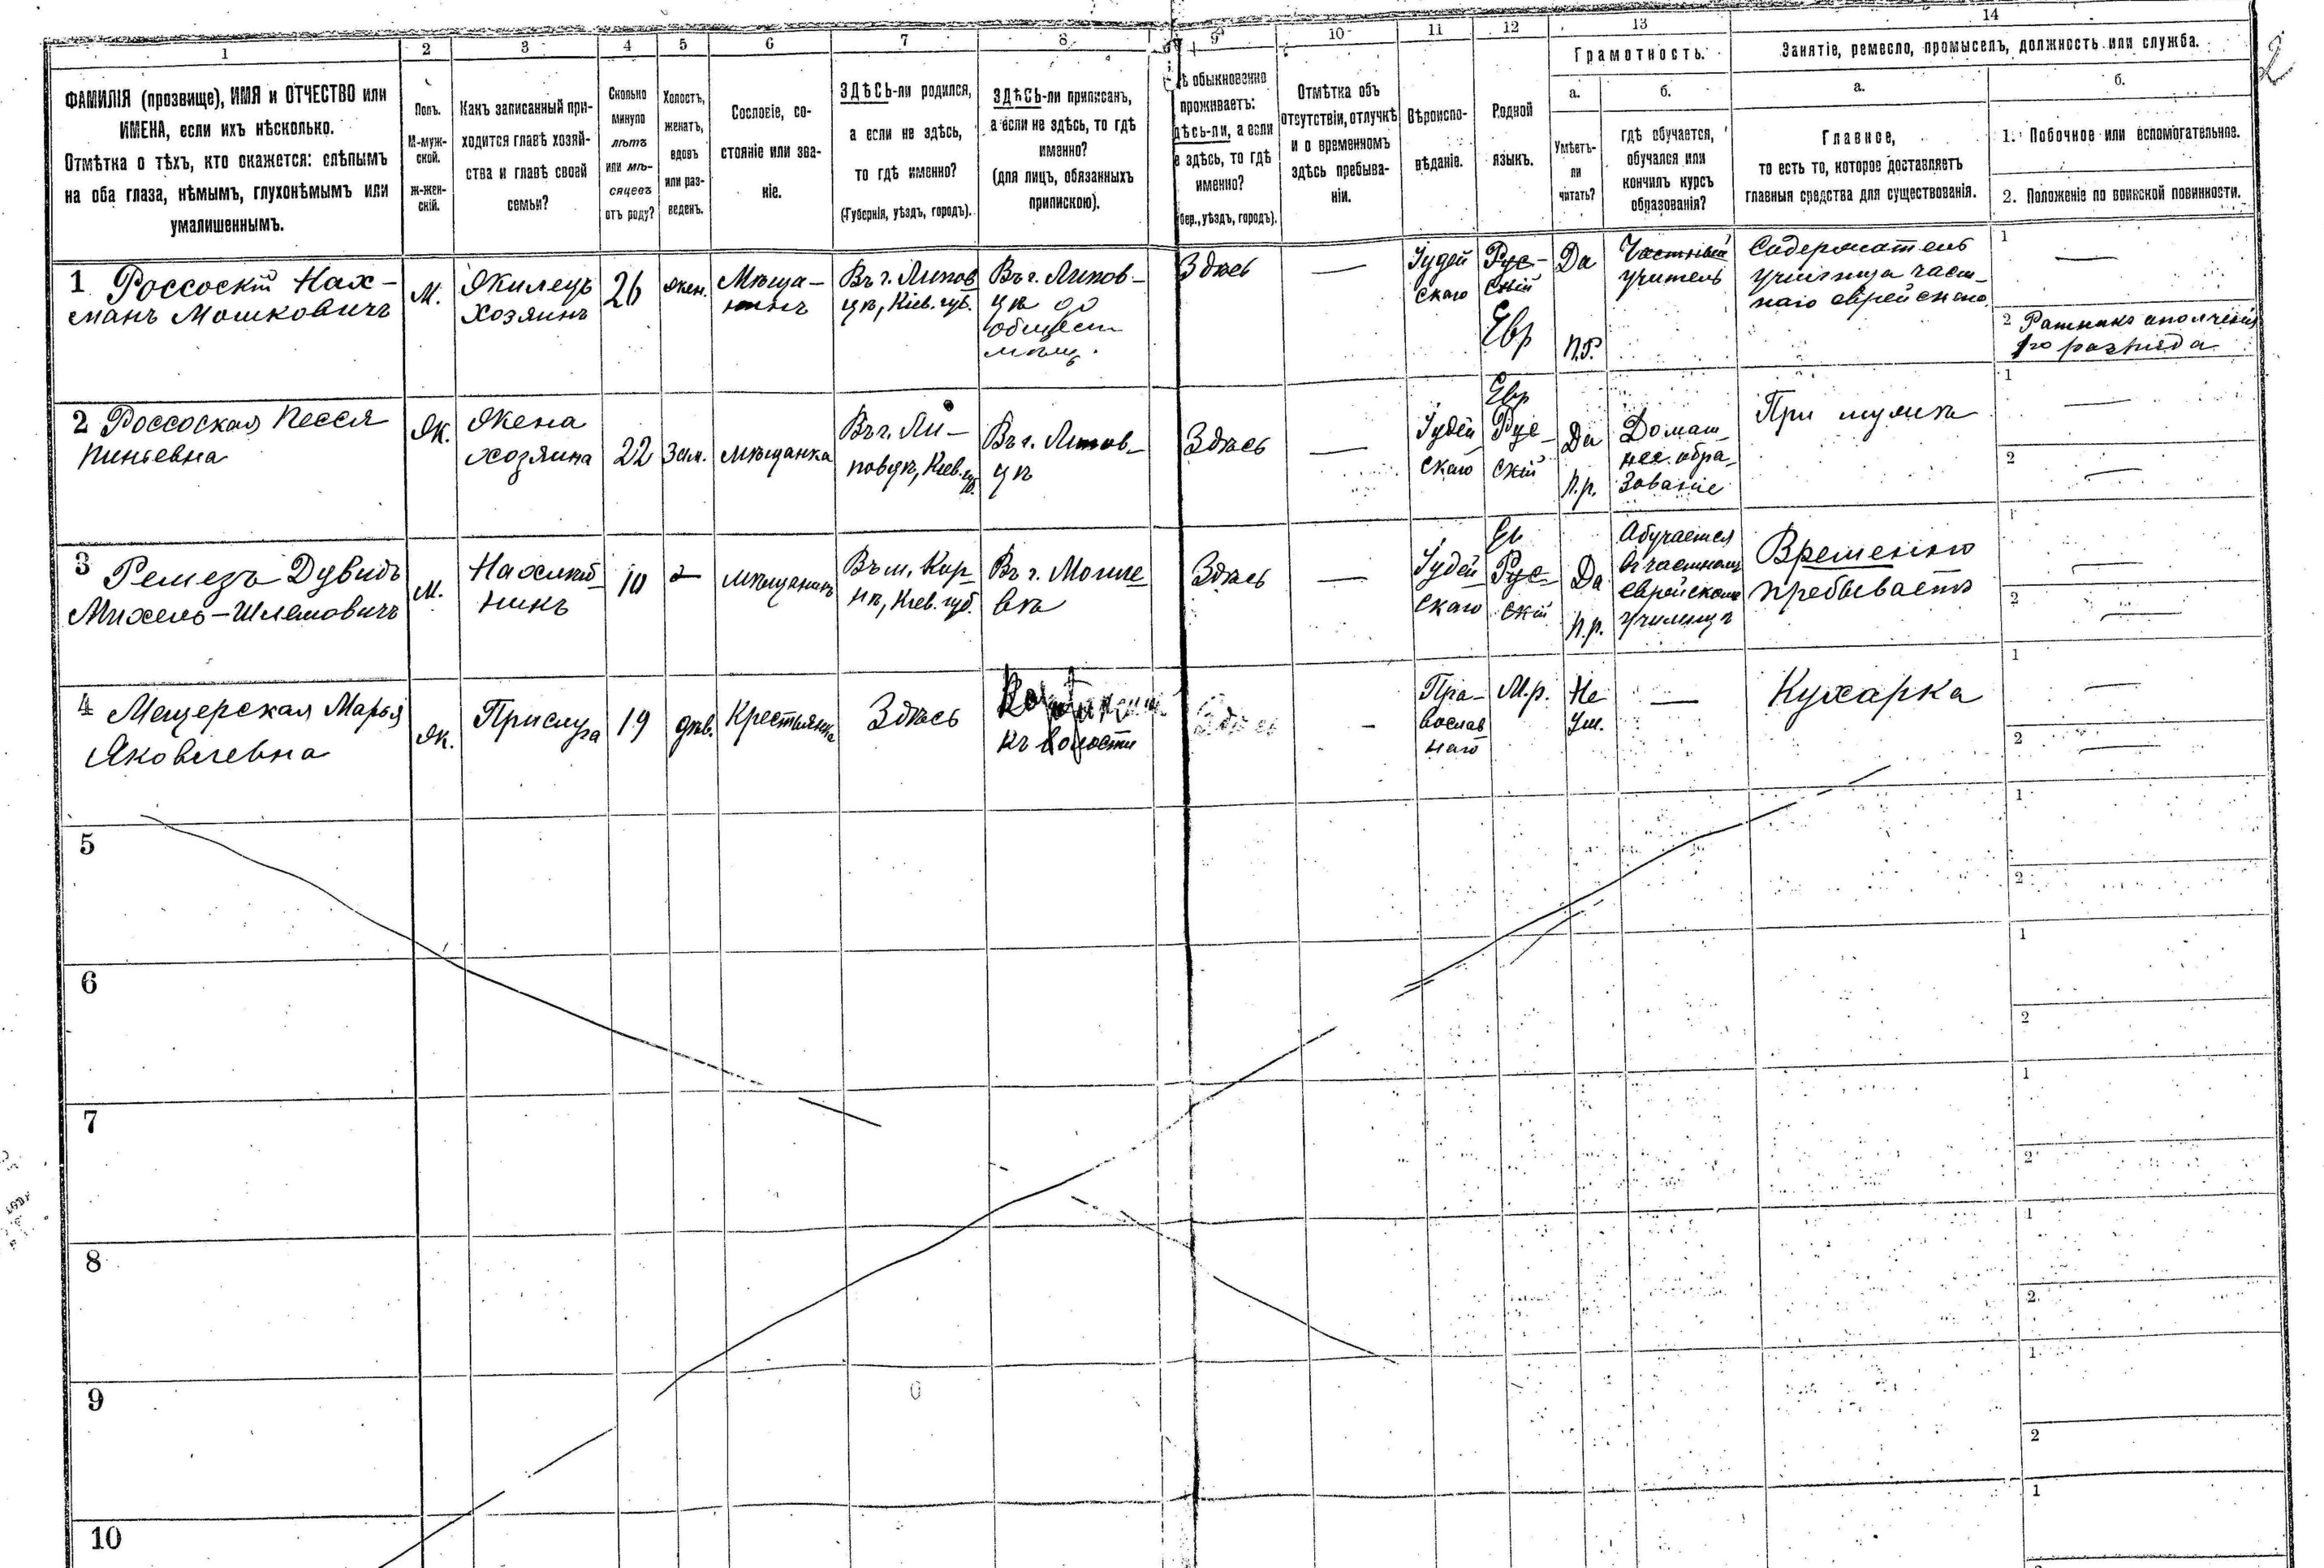 1
2
3
4
5
6
7
8
9
10
11
12
13
14
ФАМИЛІЯ (прозвище), ИМЯ и ОТЧЕСТВО или
ИМЕНА, если ихъ нѣсколько.
Отмѣтка о тѣхъ, кто окажется: слѣпымъ
на оба глаза, нѣмымъ, глухонѣмымъ или
умалишеннымъ.
Полъ.
М-муж-
ской.
Ж-жен-
скій.
Какъ записанный при-
ходится главѣ хозяй-
ства и главѣ своей
семьи?
Сколько
минуло
лѣтъ
или мѣ-
сяцевъ
отъ роду?
Холостъ,
женатъ,
вдовъ
или раз-
веденъ.
Сословіе, со-
стояніе или зва-
ніе.
ЗДѢСЬ-ли родился,
а если не здѣсь,
то гдѣ именно?
(Губернія, уѣздъ, городъ).
ЗДѢСЬ-ли приписанъ,
а если не здѣсь, то гдѣ
именно?
(для лицъ, обязанныхъ
припискою).
обыкновенно
проживаетъ:
здѣсь-ли, а если
не здѣсь, то гдѣ
именно?
(губер., уѣздъ, городъ).
Отмѣтка объ
отсутствіи, отлучкѣ
и о временномъ
здѣсь пребыва-
ніи.
Вѣроиспо-
вѣданіе.
Родной
языкъ.
Грамотность.
а.
Умѣетъ-
ли
читать?
б.
гдѣ обучается,
обучался или
кончилъ курсъ
образованія?
Занятіе, ремесло, промыселъ, должность или служба.
а.
Главное,
то есть то, которое доставляетъ
главныя средства для существованія.
б.
1. Побочное или вспомогательное.
2. Положеніе по воинской повинности.
2
1 Россоскій Нах-
манъ Мошковичъ
М.
Жилецъ
Хозяинъ
26
жен.
Мѣща-
нинъ
Въ г. Липов
цѣ, Кіев. губ.
Въ г. Липов-
цѣ
общест
мѣщ.
Здѣсь
—
Іудей
скаго
Рус-
скій
Евр
Да
п.р.
Частный
учитель
Содержатель
училища част-
наго еврейскаго
1 —
2 Ратникъ ополченія
1го разряда
2 Россоская Песся
Пиньевна
Ж.
Жена
хозяина
22
Зам.
мѣщанка
Въ г. Ли-
повцѣ, Кіев. губ.
Въ г. Липов-
цѣ
Здѣсь
—
Іудей
скаго
Евр
Рус-
скій
Да
п.р.
Домаш-
нее обра-
зованіе
При мужѣ
1 —
2 —
3 Ремезъ Дувидъ
Михель-Шлемовичъ
М.
Нахлѣб-
никъ
10
—
мѣщанинъ
Въ м. Кор-
нѣ, Кіев. губ.
Въ г. Моги-
вѣ
Здѣсь
—
Іудей
скаго
Ев
Рус-
скій
Да
п.р.
Абучается
въ частномъ
еврейскомъ
училищѣ
Временно
пребываетъ
1 —
2 —
4 Мещерская Марья
Яковлевна
Ж.
Прислуга
19
дѣв.
Крестьянка
Здѣсь
волости
Здѣсь
-
Пра-
вослав
наго
М.р.
Не
ум.
—
Кухарка
1 —
2 —
5
1
2
6
1
2
7
1
2
8
1
2
9
1
2
10
1